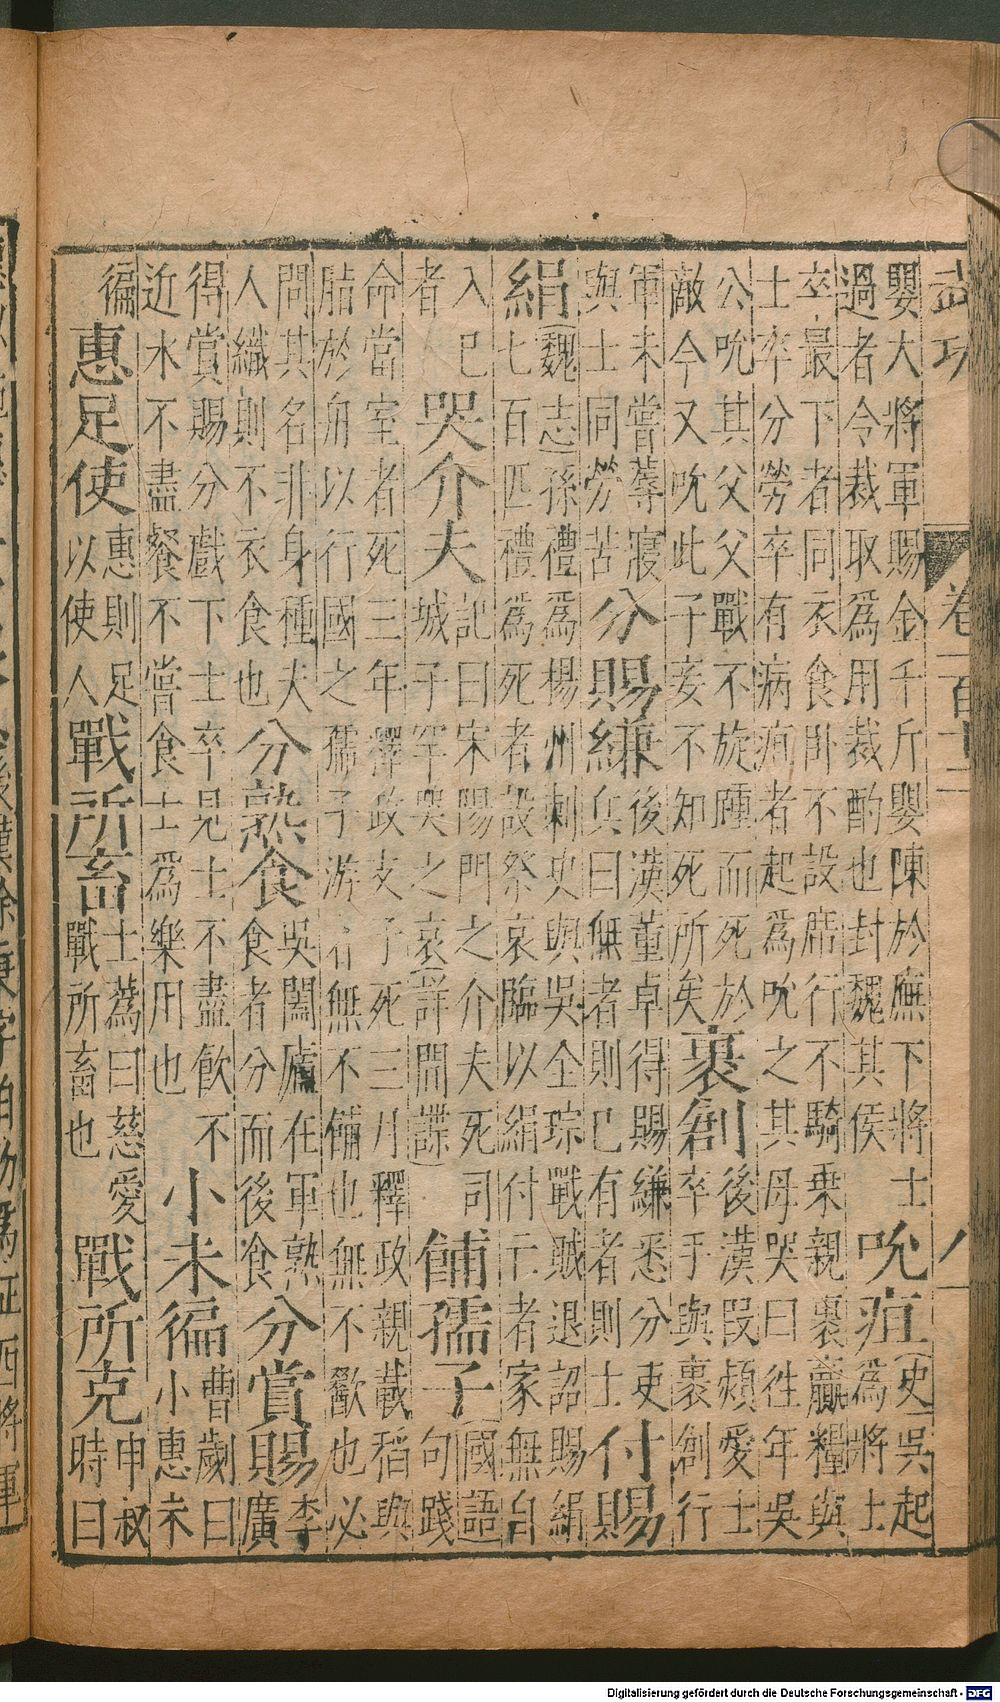 武功
卷一百十
嬰大將軍賜金千斤嬰陳於廡下將士
過者令裁取為用裁酌也封魏其侯
吮疽
史吳起
為將士
卒最下者同衣食臥不設席行不騎乗親裹贏糧與
士卒分勞卒有病疽者起為吮之其母哭曰徃年吳
公吮其父父戰不旋踵而死於
敵今又吮此子妾不知死所矣
裹創
後漢段熲愛士
卒手與裹創行
軍未嘗蓐寢
與士同勞苦
分賜縑
後漢董卓得賜縑悉分吏
兵曰無者則已有者則士
付賜
絹
魏志孫禮為楊州刺史與吳全琮戰賊退詔賜絹
七百匹禮為死者設祭哀臨以絹付亡者家無自
入巳
者
哭介夫
記曰宋陽門之介夫死司
城子罕哭之哀詳間諜
餔孺子
國語
句踐
命當室者死三年釋政支子死三月釋政親載稻與
脂於舟以行國之孺子游者無不餔也無不歠也必
問其名非身種夫
人織則不衣食也
分熟食
吳闔廬在軍熟
食者分而後食
分賞賜
李
廣
得賞賜分戲下士卒見士不盡飲不
近水不盡餐不嘗食士為樂用也
小未徧
曹劌曰
小惠未
徧
惠足使
惠則足
以使人
戰所畜
士蒍曰慈愛
戰所畜也
戰所克
申叔
時曰
Digitalisierung gefördert durch die Deutsche Forschungsgemeinschaft - DFG